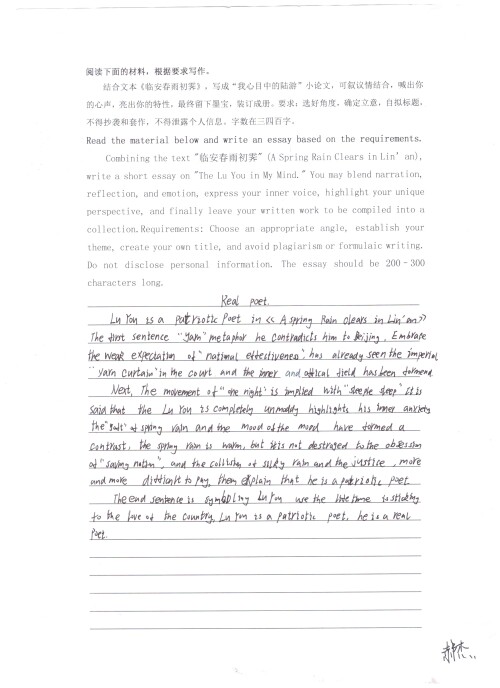 阅读下面的材料，根据要求写作。
结合文本《临安春雨初霁》，写成“我心目中的陆游”小论文，可叙议情结合，喊出你
的心声，亮出你的特性，最终留下墨宝，装订成册。要求：选好角度，确定立意，自拟标题，
不得抄袭和套作，不得泄露个人信息。字数在三四百字。
Read the material below and write an essay based on the requirements.
Combining the text "临安春雨初霁" (A Spring Rain Clears in Lin'an),
write a short essay on "The Lu You in My Mind." You may blend narration,
reflection, and emotion, express your inner voice, highlight your unique
perspective, and finally leave your written work to be compiled into a
collection.Requirements: Choose an appropriate angle, establish your
theme, create your own title, and avoid plagiarism or formulaic writing.
Do not disclose personal information. The essay should be 200–300
characters long.
Real poet.
Lu You is a patriotic poet in << A spring Rain clears in Lin'an>>
The first sentence "yarn" metaphor he contradicts him to Beijing. Embrace
the weak expectation of "national effectiveness", has already seen the imperial
"yarn curtain" in the court and the inner and offical field has been formend
Next, The movement of "one night" is implied with "steeple sleep" It is
said that the Lu You is completely unmoddy highlights his inner anxiety
the of spring rain and the mood of the mord have formed a
contrast, the spring rain is warm, but it is not destroyed to the obsession
of "saving nation", and the collision of silky rain and the justice, more
and more difficult to pay, them explain that he is a patriotic poet.
The end sentence is symboling Lu You use the life time is sticking
to the love of the country, Lu You is a patriotic poet, he is a real
Poet.